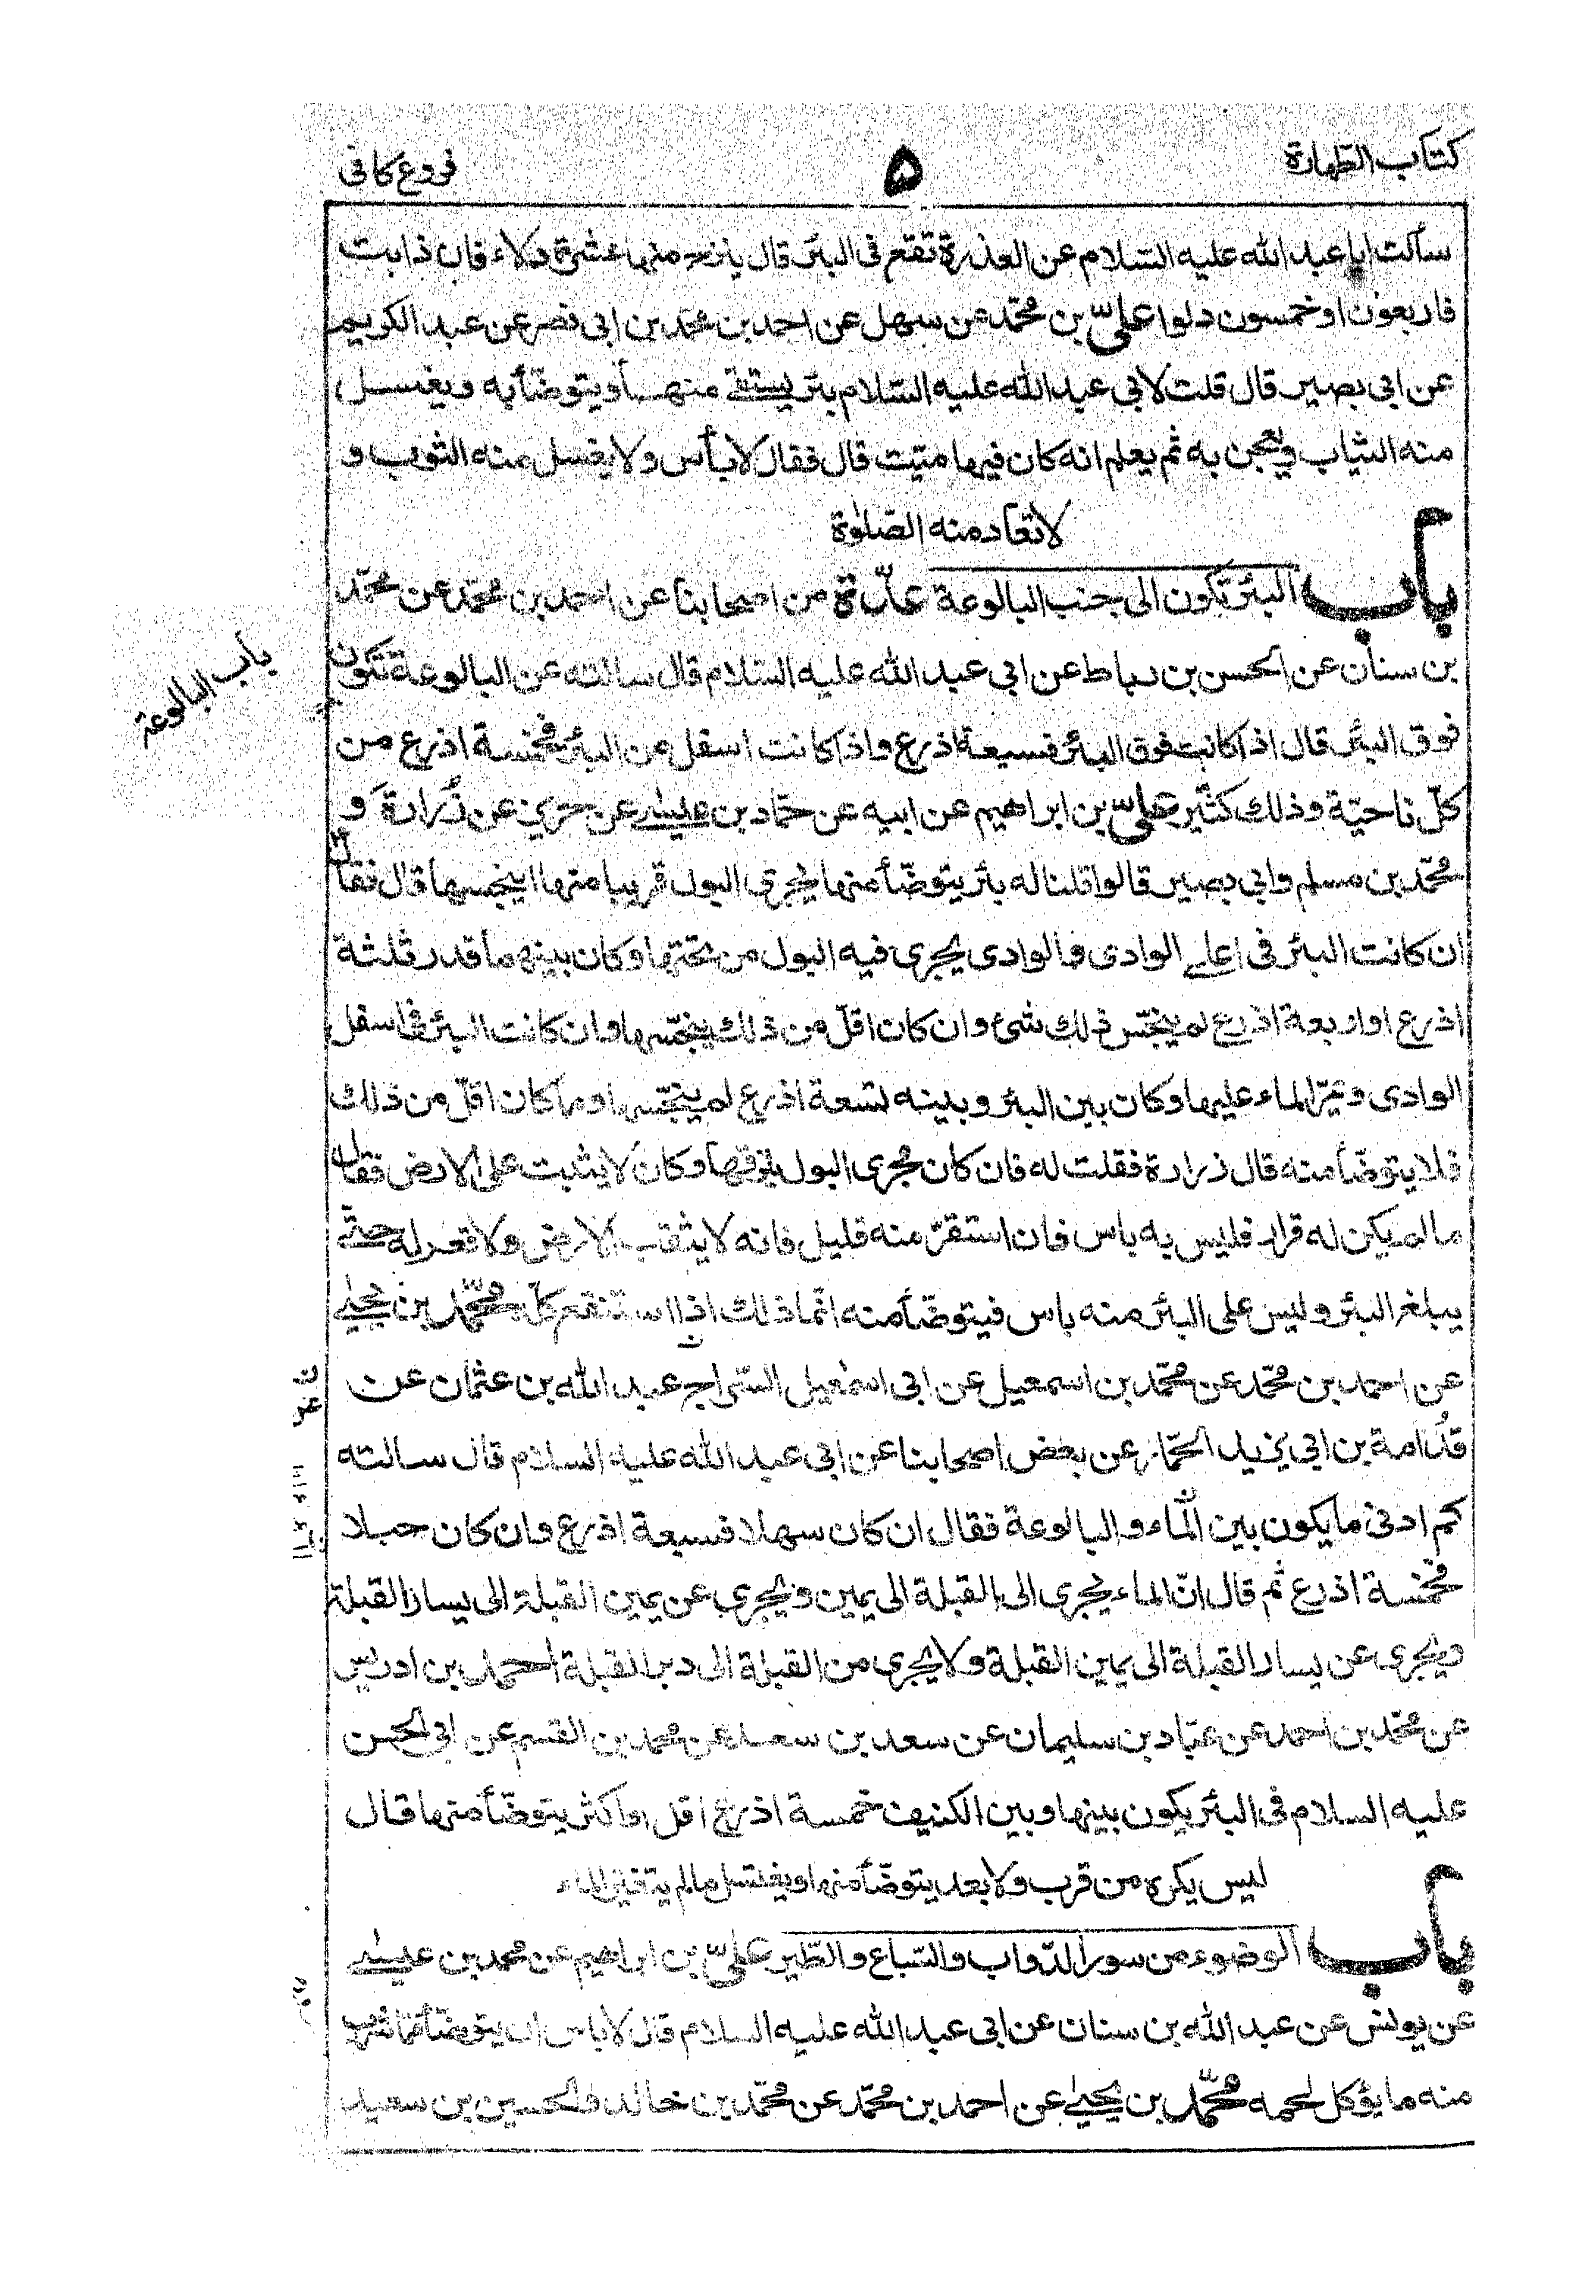 كتاب الطهارة
۵
فروع كافى
سألت ابا عبد الله عليه السّلام عن العذرة تقع فى البئر قال ينزح منها عشرة دلاء فان ذابت
فاربعون او خمسون دلوا علىّ بن محمّد عن سهل عن احمد بن محمّد بن ابى نصر عن عبد الكريم
عن ابى بصير قال قلت لابى عبد الله عليه السّلام بئر يستقى منها ويتوضّأ به ويغسل
منه الثياب ويعجن به ثم يعلم انه كان فيها ميّت قال فقال لا بأس ولا يغسل منه الثوب و
لا تعاد منه الصّلوة
باب البئر تكون الى جنب البالوعة عدّة من اصحابنا عن احمد بن محمّد عن محمّد
باب البالوعة
بن سنان عن الحسن بن رباط عن ابى عبد الله عليه السّلام قال سالته عن البالوعة تكون
فوق البئر قال اذا كانت فوق البئر فسبعة اذرع واذا كانت اسفل من البئر فخمسة اذرع من
كلّ ناحيّة وذلك كثير علىّ بن ابراهيم عن ابيه عن حمّاد بن عيسى عن حريز عن زُرارة و
محمّد بن مسلم وابى بصير قالوا قلنا له بئر يتوضّأ منها يجرى البول قريبا منها اينجسها قال فقال
ان كانت البئر فى اعلى الوادى والوادى يجرى فيه البول من تحتها وكان بينهما قدر ثلثة
اذرع او اربعة اذرع لم ينجّس ذلك شئ وان كان اقلّ من ذلك ينجّسها وان كانت البئر فى اسفل
الوادى ويمرّ الماء عليها وكان بين البئر وبينه تسعة اذرع لم ينجّسها وما كان اقلّ من ذلك
فلا يتوضّأ منه قال زرارة فقلت له فان كان مجرى البول يلزقها وكان لا يثبت على الارض فقال
ما لم يكن له قرار فليس به باس فان استقرّ منه قليل فانه لا يثقب الارض ولا قعر له حتّى
يبلغ البئر وليس على البئر منه باس فيتوضّأ منه انّما ذلك اذا استنقع كلّه محمّد بن يحيى
عن احمد بن محمّد عن محمّد بن اسمعيل عن ابى اسمعيل السّراج عبد الله بن عثمان عن
قدُامة بن ابى يزيد الحمّار عن بعض اصحابنا عن ابى عبد الله عليه السلام قال سالته
كم ادنى ما يكون بين الماء والبالوعة فقال ان كان سهلا فسبعة اذرع وان كان جبلا
فخمسة اذرع ثم قال انّ الماء يجرى الى القبلة الى يمين ويجرى عن يمين القبلة الى يسار القبلة
ويجرى عن يسار القبلة الى يمين القبلة ولا يجرى من القبلة الى دبر القبلة احمد بن ادريس
عن محمّد بن احمد عن عبّاد بن سليمان عن سعد بن سعد عن محمد بن القسم عن ابى الحسن
عليه السلام فى البئر يكون بينها وبين الكنيف خمسة اذرع اقل او اكثر يتوضّأ منها قال
ليس يكره من قرب ولا بعد يتوضّأ منها ويغتسل ما لم يتغيّر الماء
باب الوضوء من سور الدّواب والسّباع والطّير علىّ بن ابراهيم عن محمد بن عيسى
عن يونس عن عبد الله بن سنان عن ابى عبد الله عليه السلام قال لا باس ان يتوضّأ ممّا شرب
منه ما يؤكل لحمه محمّد بن يحيى عن احمد بن محمّد عن محمّد بن خالد والحسين بن سعيد